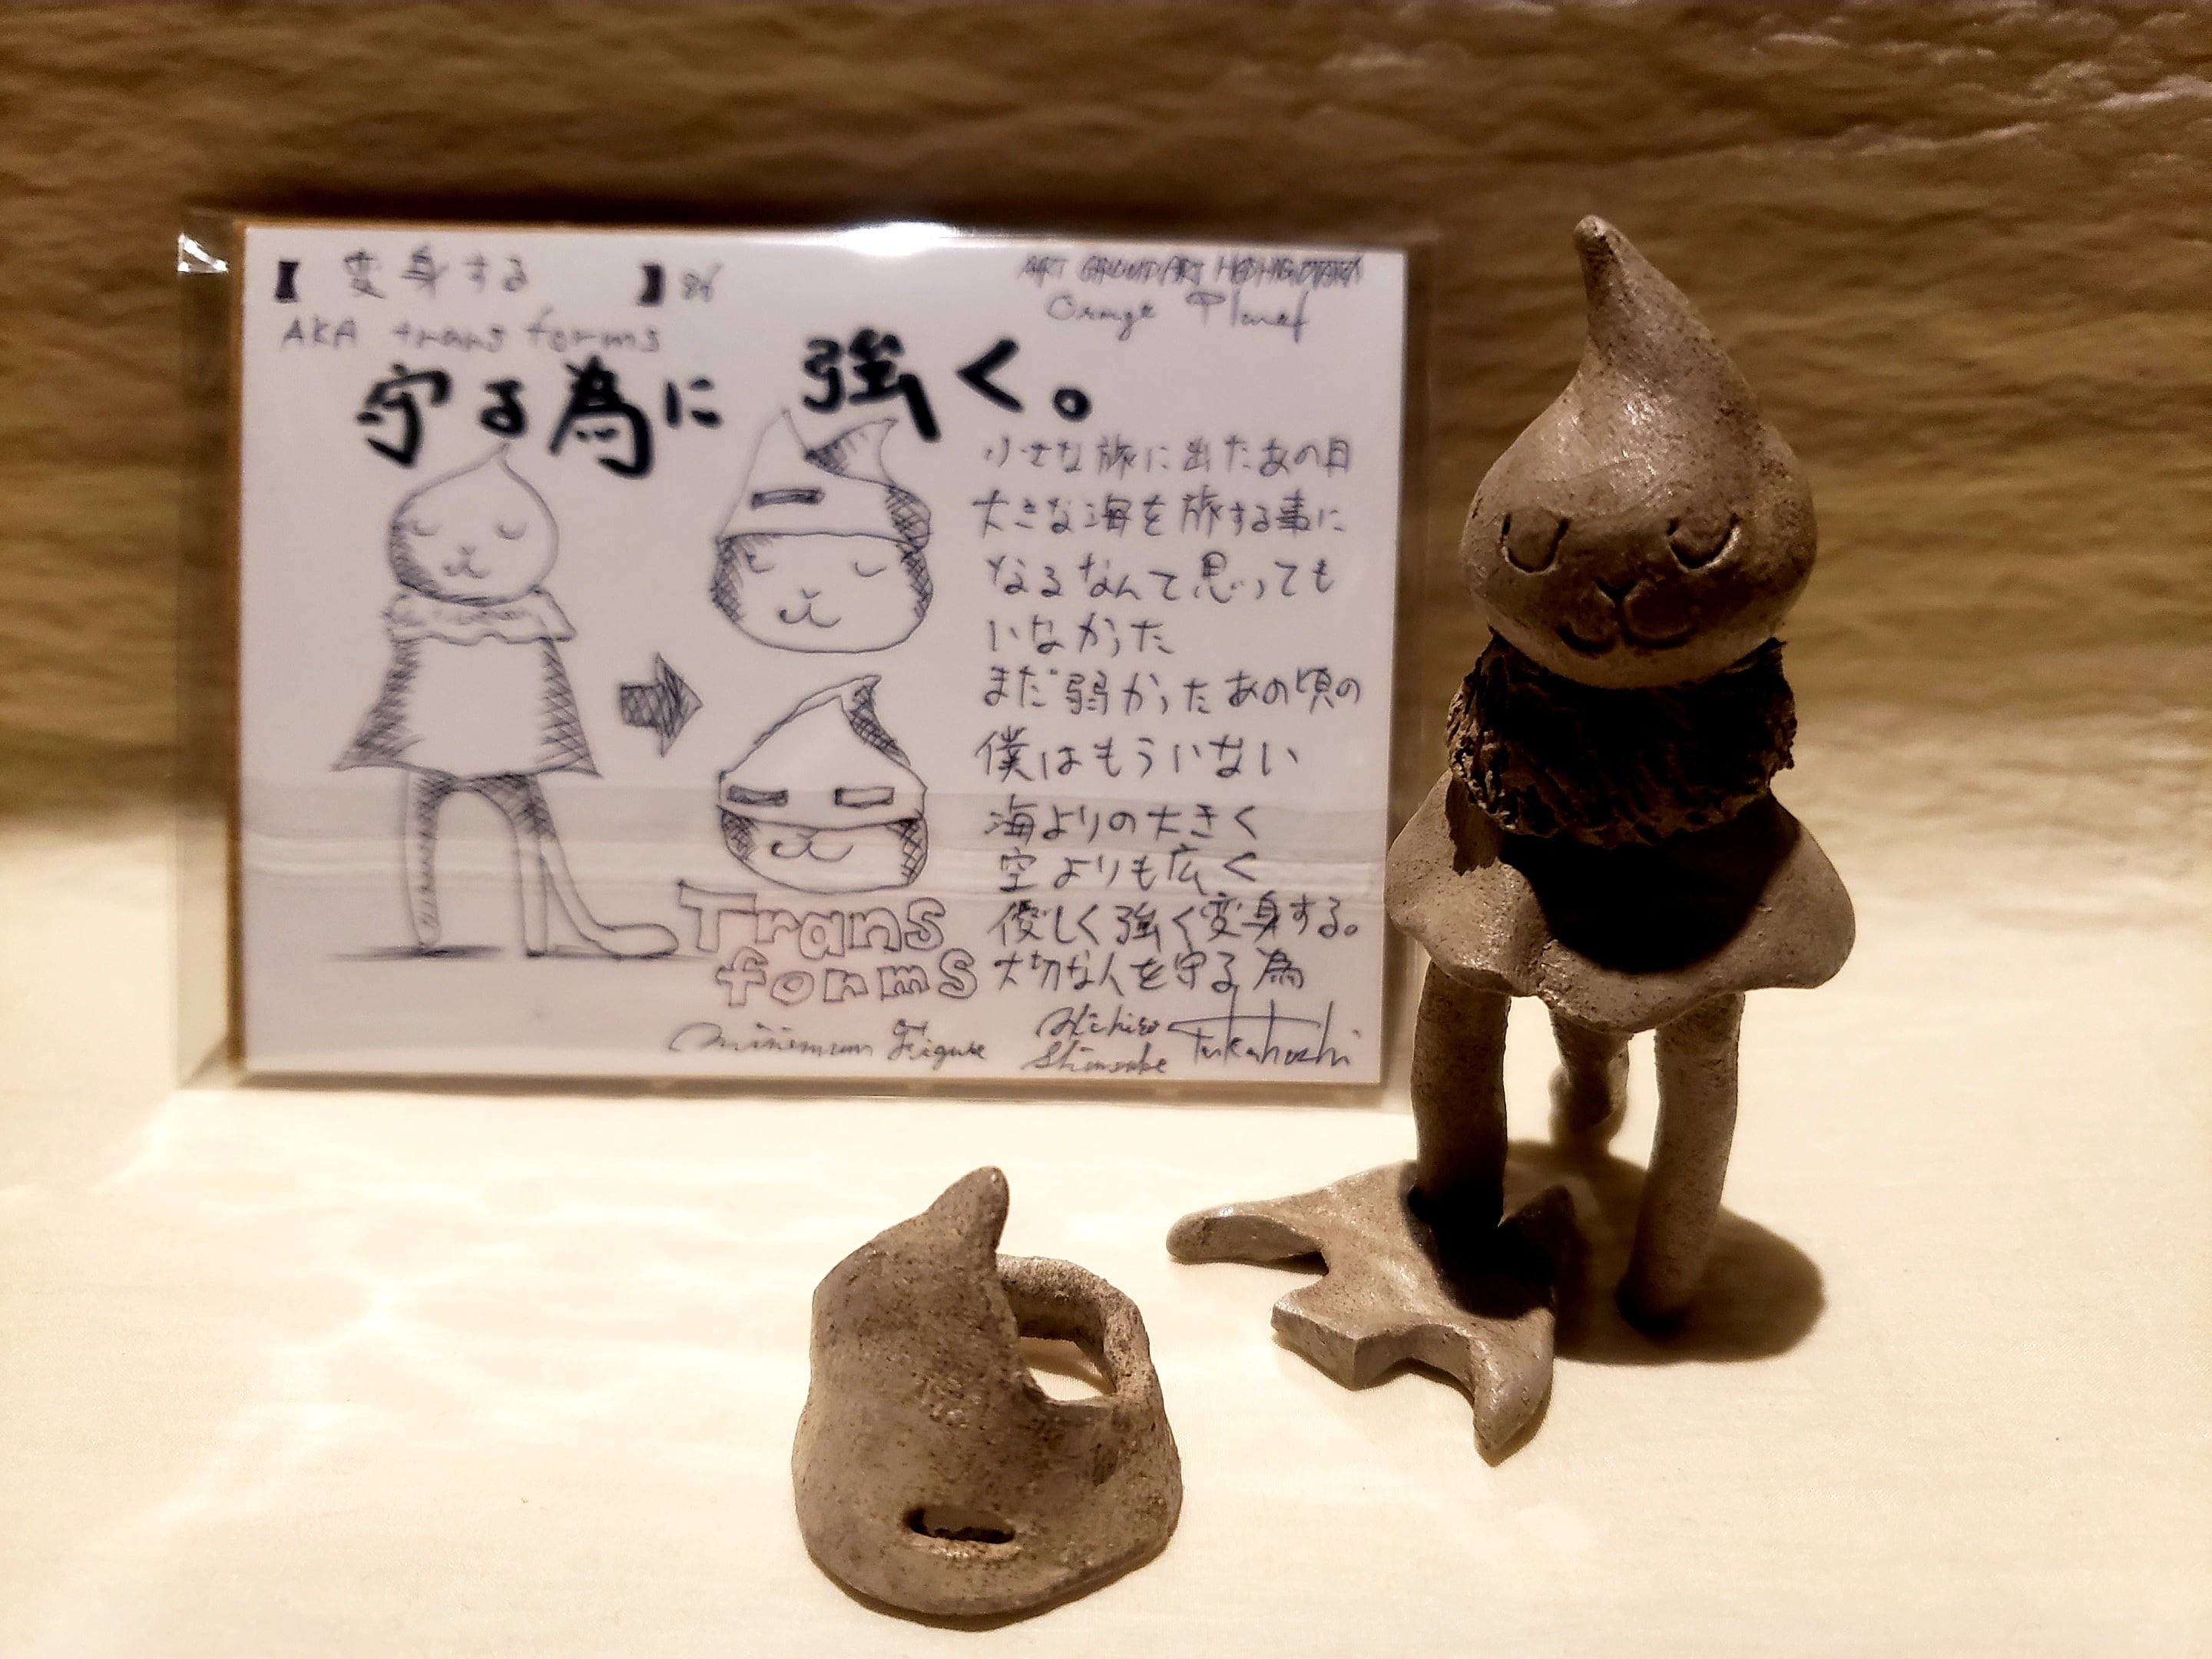 【 変身する 】86
AKA trans forms
Orange Planet
守る為に 強く。
小さな旅に出たあの日
大きな海を旅する事に
なるなんて思っても
いなかった
まだ弱かったあの頃の
僕はもういない
海よりの大きく
空よりも広く
優しく強く変身する。
大切な人を守る為
Trans
forms
Minimum Figure
Shinsuke Takahashi